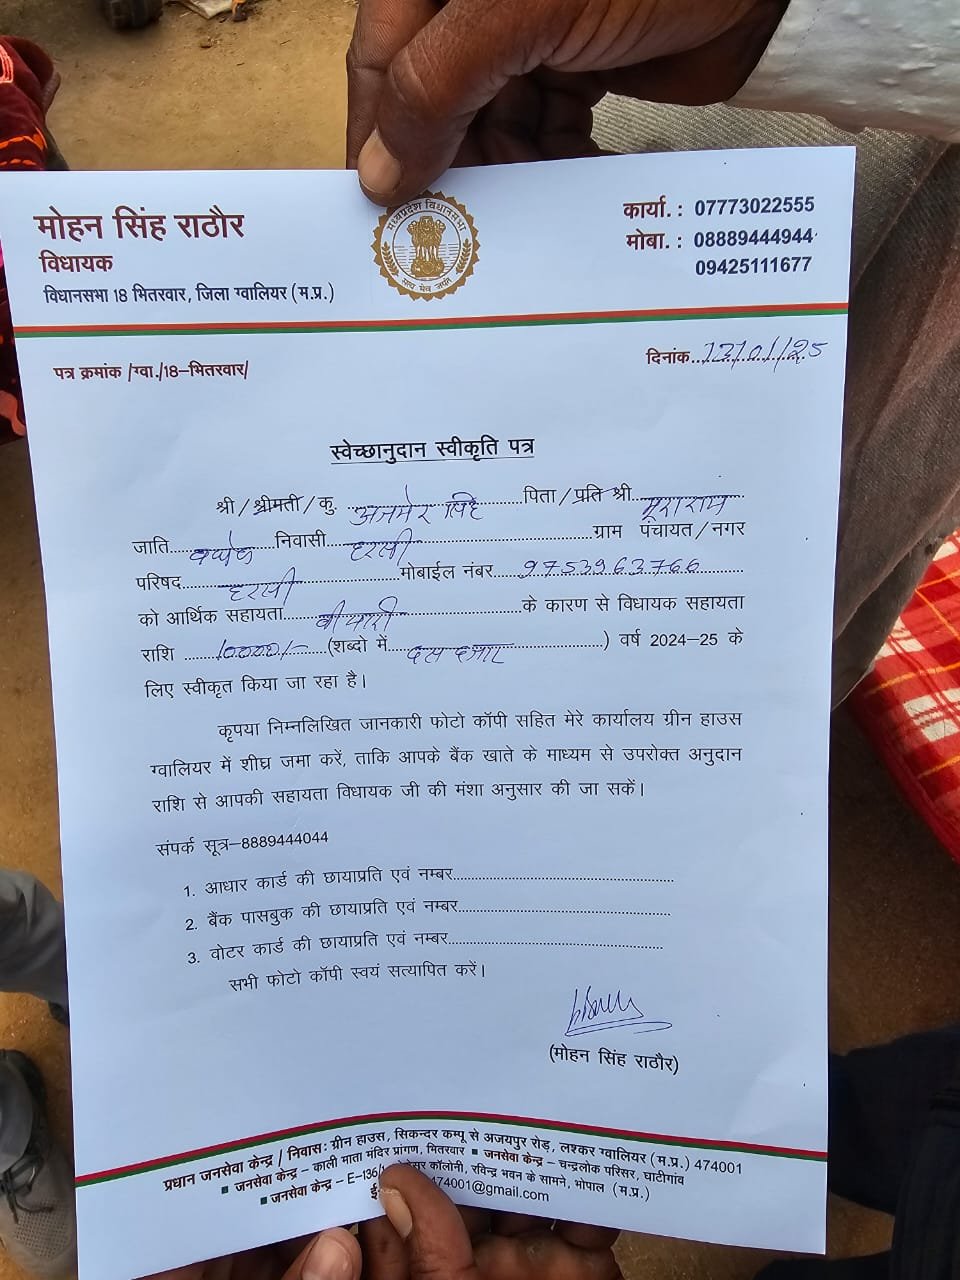 मोहन सिंह राठौर
विधायक
विधानसभा 18 भितरवार, जिला ग्वालियर (म.प्र.)
मध्यप्रदेश विधानसभा
सत्यमेव जयते
कार्या. : 07773022555
मोबा. : 08889444944
09425111677
पत्र क्रमांक /ग्वा./18–भितरवार/
दिनांक 13/01/25
स्वेच्छानुदान स्वीकृति पत्र
श्री / श्रीमती / कु. अजमेर सिंह पिता / प्रति श्री
जाति निवासी हरसी ग्राम पंचायत / नगर
परिषद हरसी मोबाईल नंबर 9753963766
को आर्थिक सहायता बीमारी के कारण से विधायक सहायता
राशि 10000/- (शब्दो में दस हजार ) वर्ष 2024-25 के
लिए स्वीकृत किया जा रहा है।
कृपया निम्नलिखित जानकारी फोटो कॉपी सहित मेरे कार्यालय ग्रीन हाउस
ग्वालियर में शीघ्र जमा करें, ताकि आपके बैंक खाते के माध्यम से उपरोक्त अनुदान
राशि से आपकी सहायता विधायक जी की मंशा अनुसार की जा सकें।
संपर्क सूत्र–8889444044
1. आधार कार्ड की छायाप्रति एवं नम्बर
2. बैंक पासबुक की छायाप्रति एवं नम्बर
3. वोटर कार्ड की छायाप्रति एवं नम्बर
सभी फोटो कॉपी स्वयं सत्यापित करें।
(मोहन सिंह राठौर)
प्रधान जनसेवा केन्द्र / निवास: ग्रीन हाउस, सिकन्दर कम्पू से अजयपुर रोड़, लश्कर ग्वालियर (म.प्र.) 474001
▪ जनसेवा केन्द्र – काली माता मंदिर प्रांगण, भितरवार ▪ जनसेवा केन्द्र – चन्द्रलोक परिसर, घाटीगांव
▪ जनसेवा केन्द्र – E-136/ कॉलोनी, रविन्द्र भवन के सामने, भोपाल (म.प्र.)
474001@gmail.com